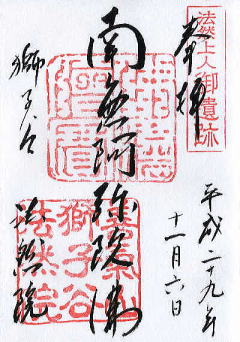 奉拝
法然上人御遺跡
南無阿弥陀佛
平成二十九年
十一月六日
獅子谷
法然院
善気山
獅子谷
法然院